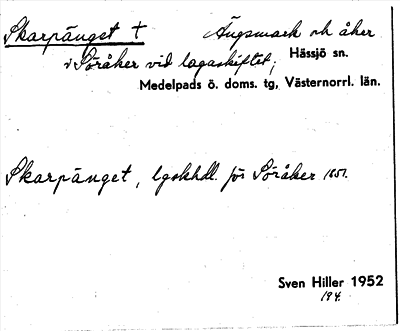 Skarpänget † Ängsmark och åker
v Söråker vid lagaskiftet; Hässjö sn.
Medelpads ö. doms. tg, Västernorrl. län.
Skarpänget, lgskhdl. för Söråker 1851.
Sven Hiller 1952
194